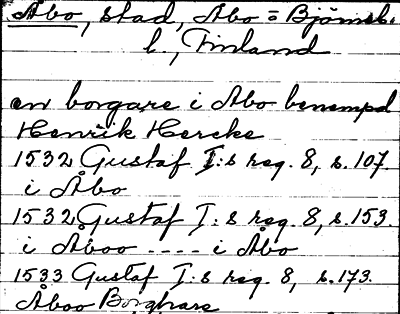 Åbo, stad, Åbo = Björneb.
l., Finland
en borgare i Åbo benempd
Henrik Hercke
1532 Gustaf I:s reg. 8, s. 107.
i Åbo
1532 Gustaf I:s reg. 8, s. 153.
i Åboo ---- i Åbo
1533 Gustaf I:s reg. 8, s. 173.
Åboo Borghare